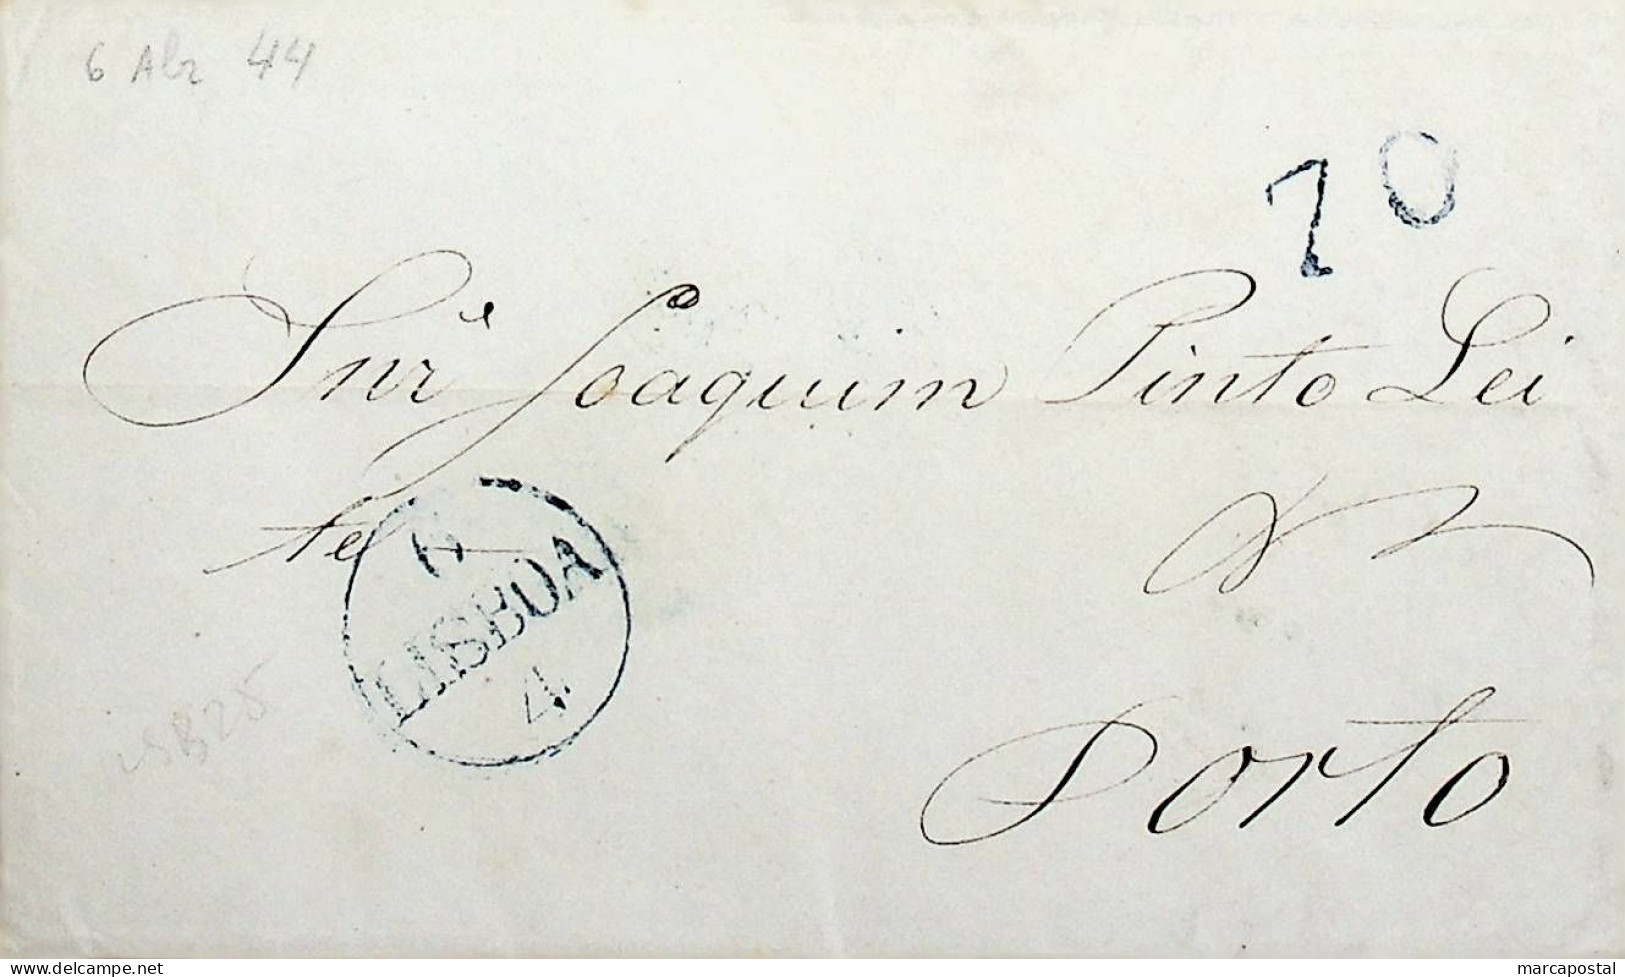 6 Abr 44
70
Snr Joaquim Pinto Lei
te
Porto
6
LISBOA
4
LSB25
www.delcampe.net
marcapostal